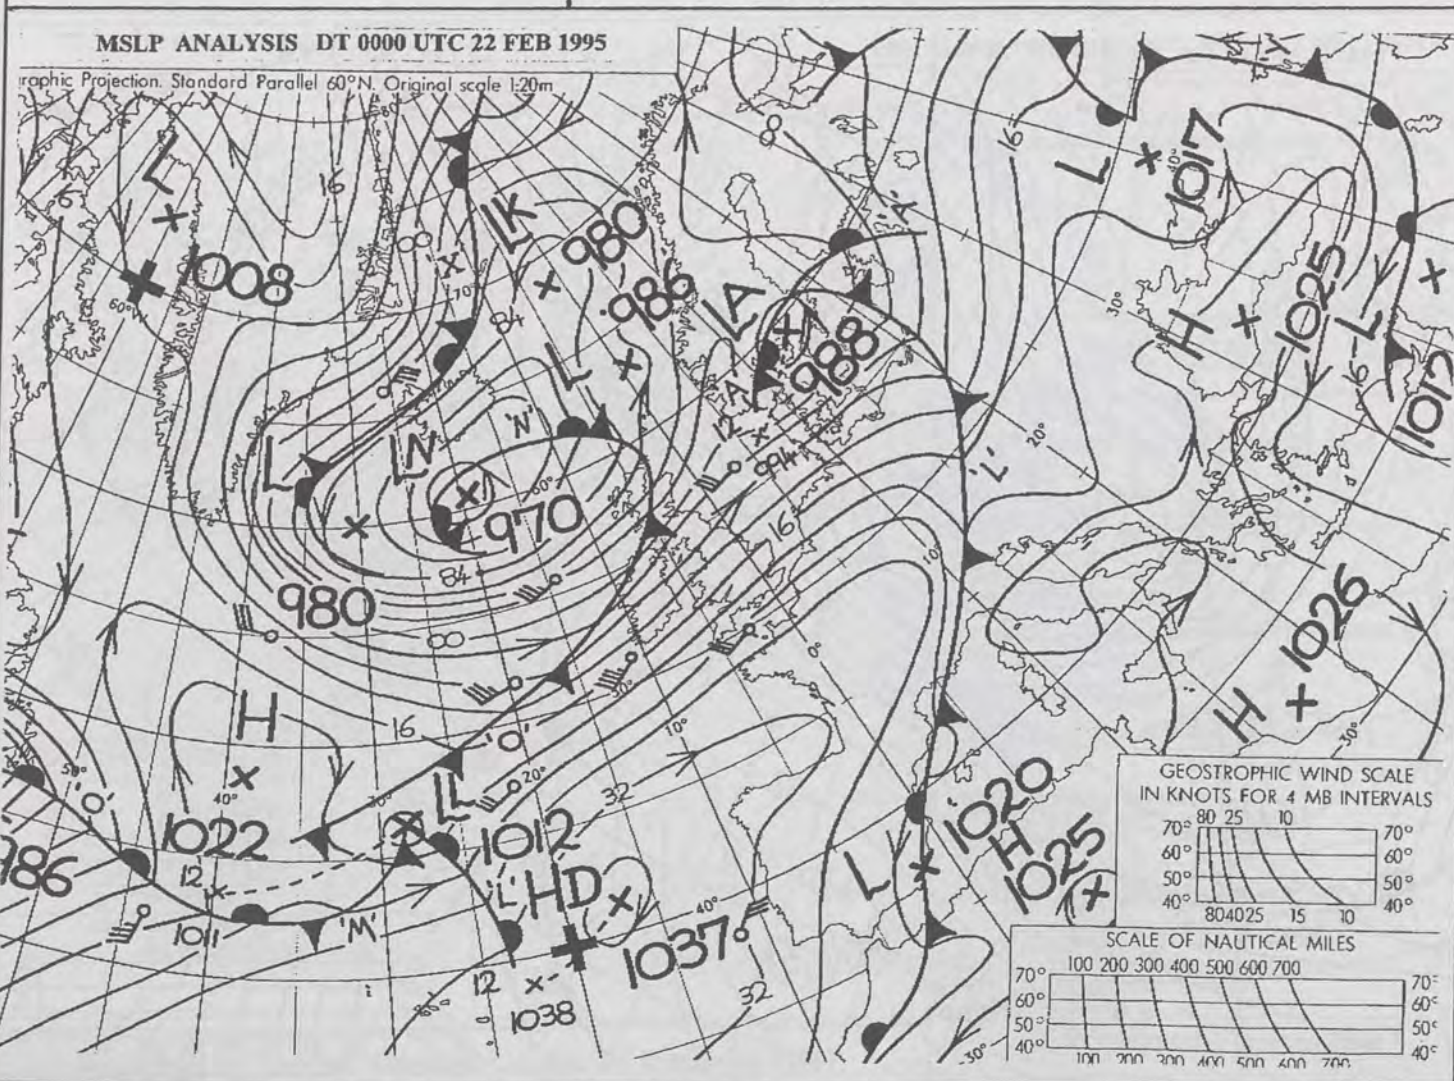 MSLP ANALYSIS DT 0000 UTC 22 FEB 1995
raphic Projection. Standard Parallel 60°N. Original scale 1:20m
L
1008
60°W
16
00
LK
980
986
L
LA
988
'A'
8
16
L
1017
40°
30°
H
1025
L
16
1012
84
70°
'N'
LN
L
970
60°
84
980
00
12
A
994
16
'L'
20°
10°
0°
H
1026
30°
H
1022
16
'O'
50°
'O'
40°
30°
20°
10°
50°
LL
1012
'L'
32
986
12
1011
'M'
HD
1037
40°
12
1038
32
L
1020
H
1025
30°
GEOSTROPHIC WIND SCALE
IN KNOTS FOR 4 MB INTERVALS
80 25 10
70° 70°
60° 60°
50° 50°
40° 40°
80 40 25 15 10
SCALE OF NAUTICAL MILES
100 200 300 400 500 600 700
70° 70°
60° 60°
50° 50°
40° 40°
100 200 300 400 500 600 700